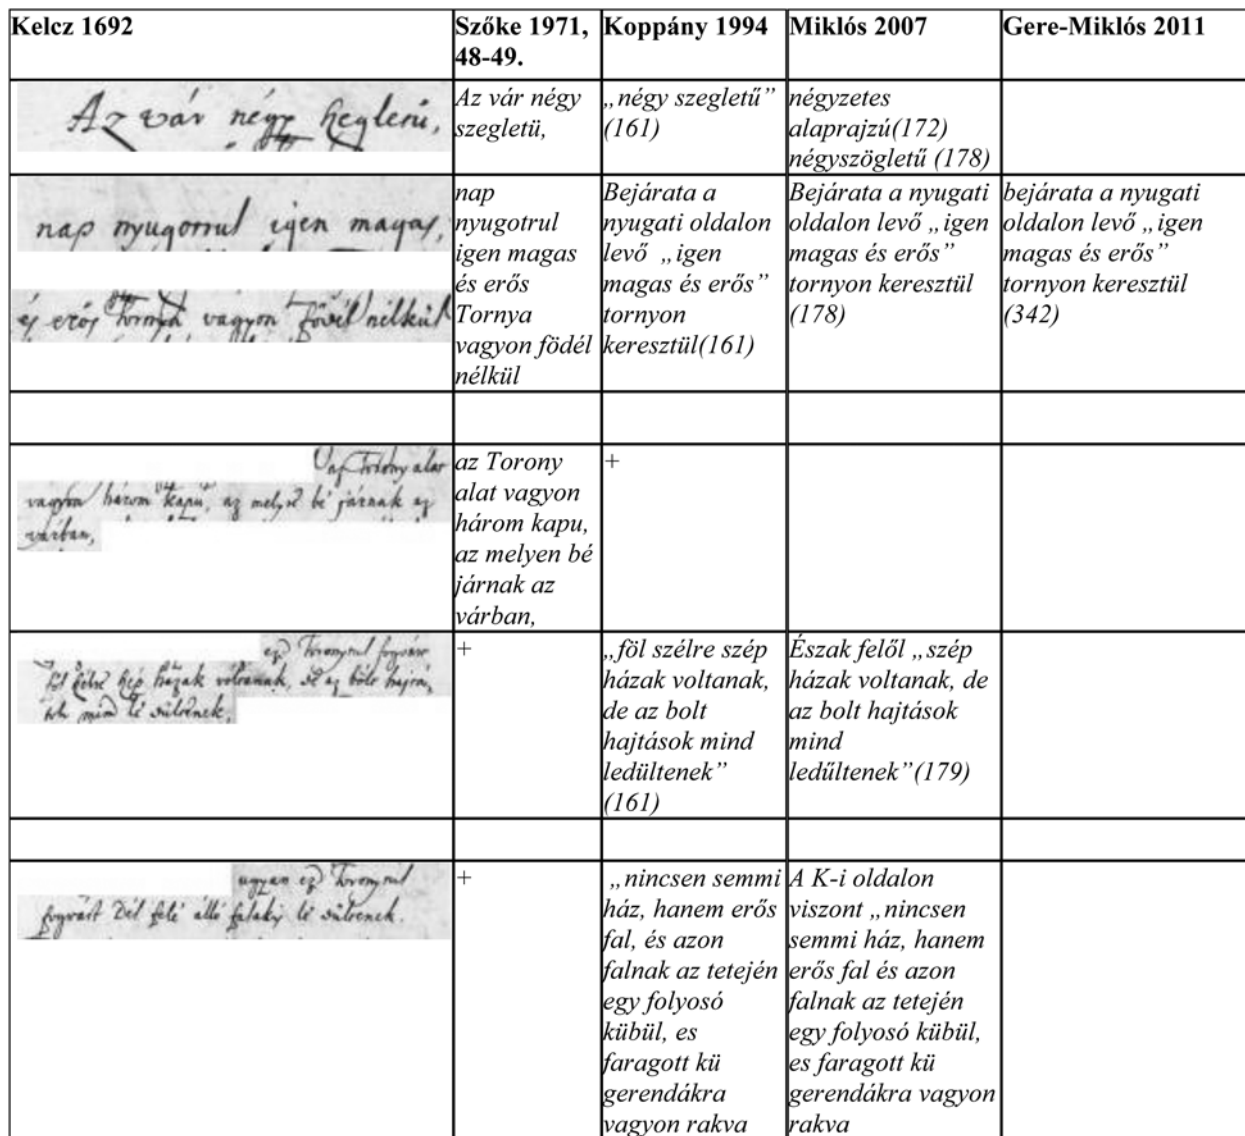 Kelcz 1692
Szőke 1971,
48-49.
Koppány 1994
Miklós 2007
Gere-Miklós 2011
Az vár négy szegletü,
Az vár négy
szegletü,
„négy szegletű”
(161)
négyzetes
alaprajzú(172)
négyszögletű (178)
nap nyugotrul igen magas,
és erős Tornya vagyon födél nélkül
nap
nyugotrul
igen magas
és erős
Tornya
vagyon födél
nélkül
Bejárata a
nyugati oldalon
levő „igen
magas és erős”
tornyon
keresztül(161)
Bejárata a nyugati
oldalon levő „igen
magas és erős”
tornyon keresztül
(178)
bejárata a nyugati
oldalon levő „igen
magas és erős”
tornyon keresztül
(342)
az Torony alat
vagyon három kapu, az melyen bé járnak az
várban,
az Torony
alat vagyon
három kapu,
az melyen bé
járnak az
várban,
+
Toronytul fogvást
föl szélre szép házak voltanak, de az bolt hajtá
sok mind lé dültenek,
+
„föl szélre szép
házak voltanak,
de az bolt
hajtások mind
ledültenek”
(161)
Észak felől „szép
házak voltanak, de
az bolt hajtások
mind
ledűltenek”(179)
ugyan Toronytul
fogvást Dél felé álló falaky lé dültenek.
+
„nincsen semmi
ház, hanem erős
fal, és azon
falnak az tetején
egy folyosó
kübül, es
faragott kü
gerendákra
vagyon rakva
A K-i oldalon
viszont „nincsen
semmi ház, hanem
erős fal és azon
falnak az tetején
egy folyosó kübül,
es faragott kü
gerendákra vagyon
rakva